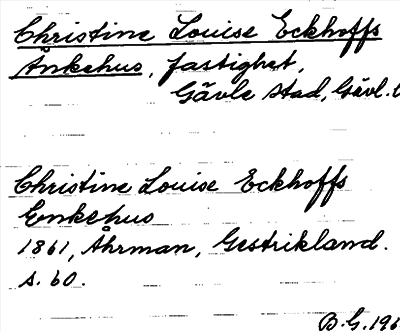 Christine Louise Eckhoffs
Änkehus, fastighet,
Gävle stad, Gävl.
Christine Louise Eckhoffs
Enkehus
1861, Åhrman, Gestrikland.
s. 60.
B.G. 196